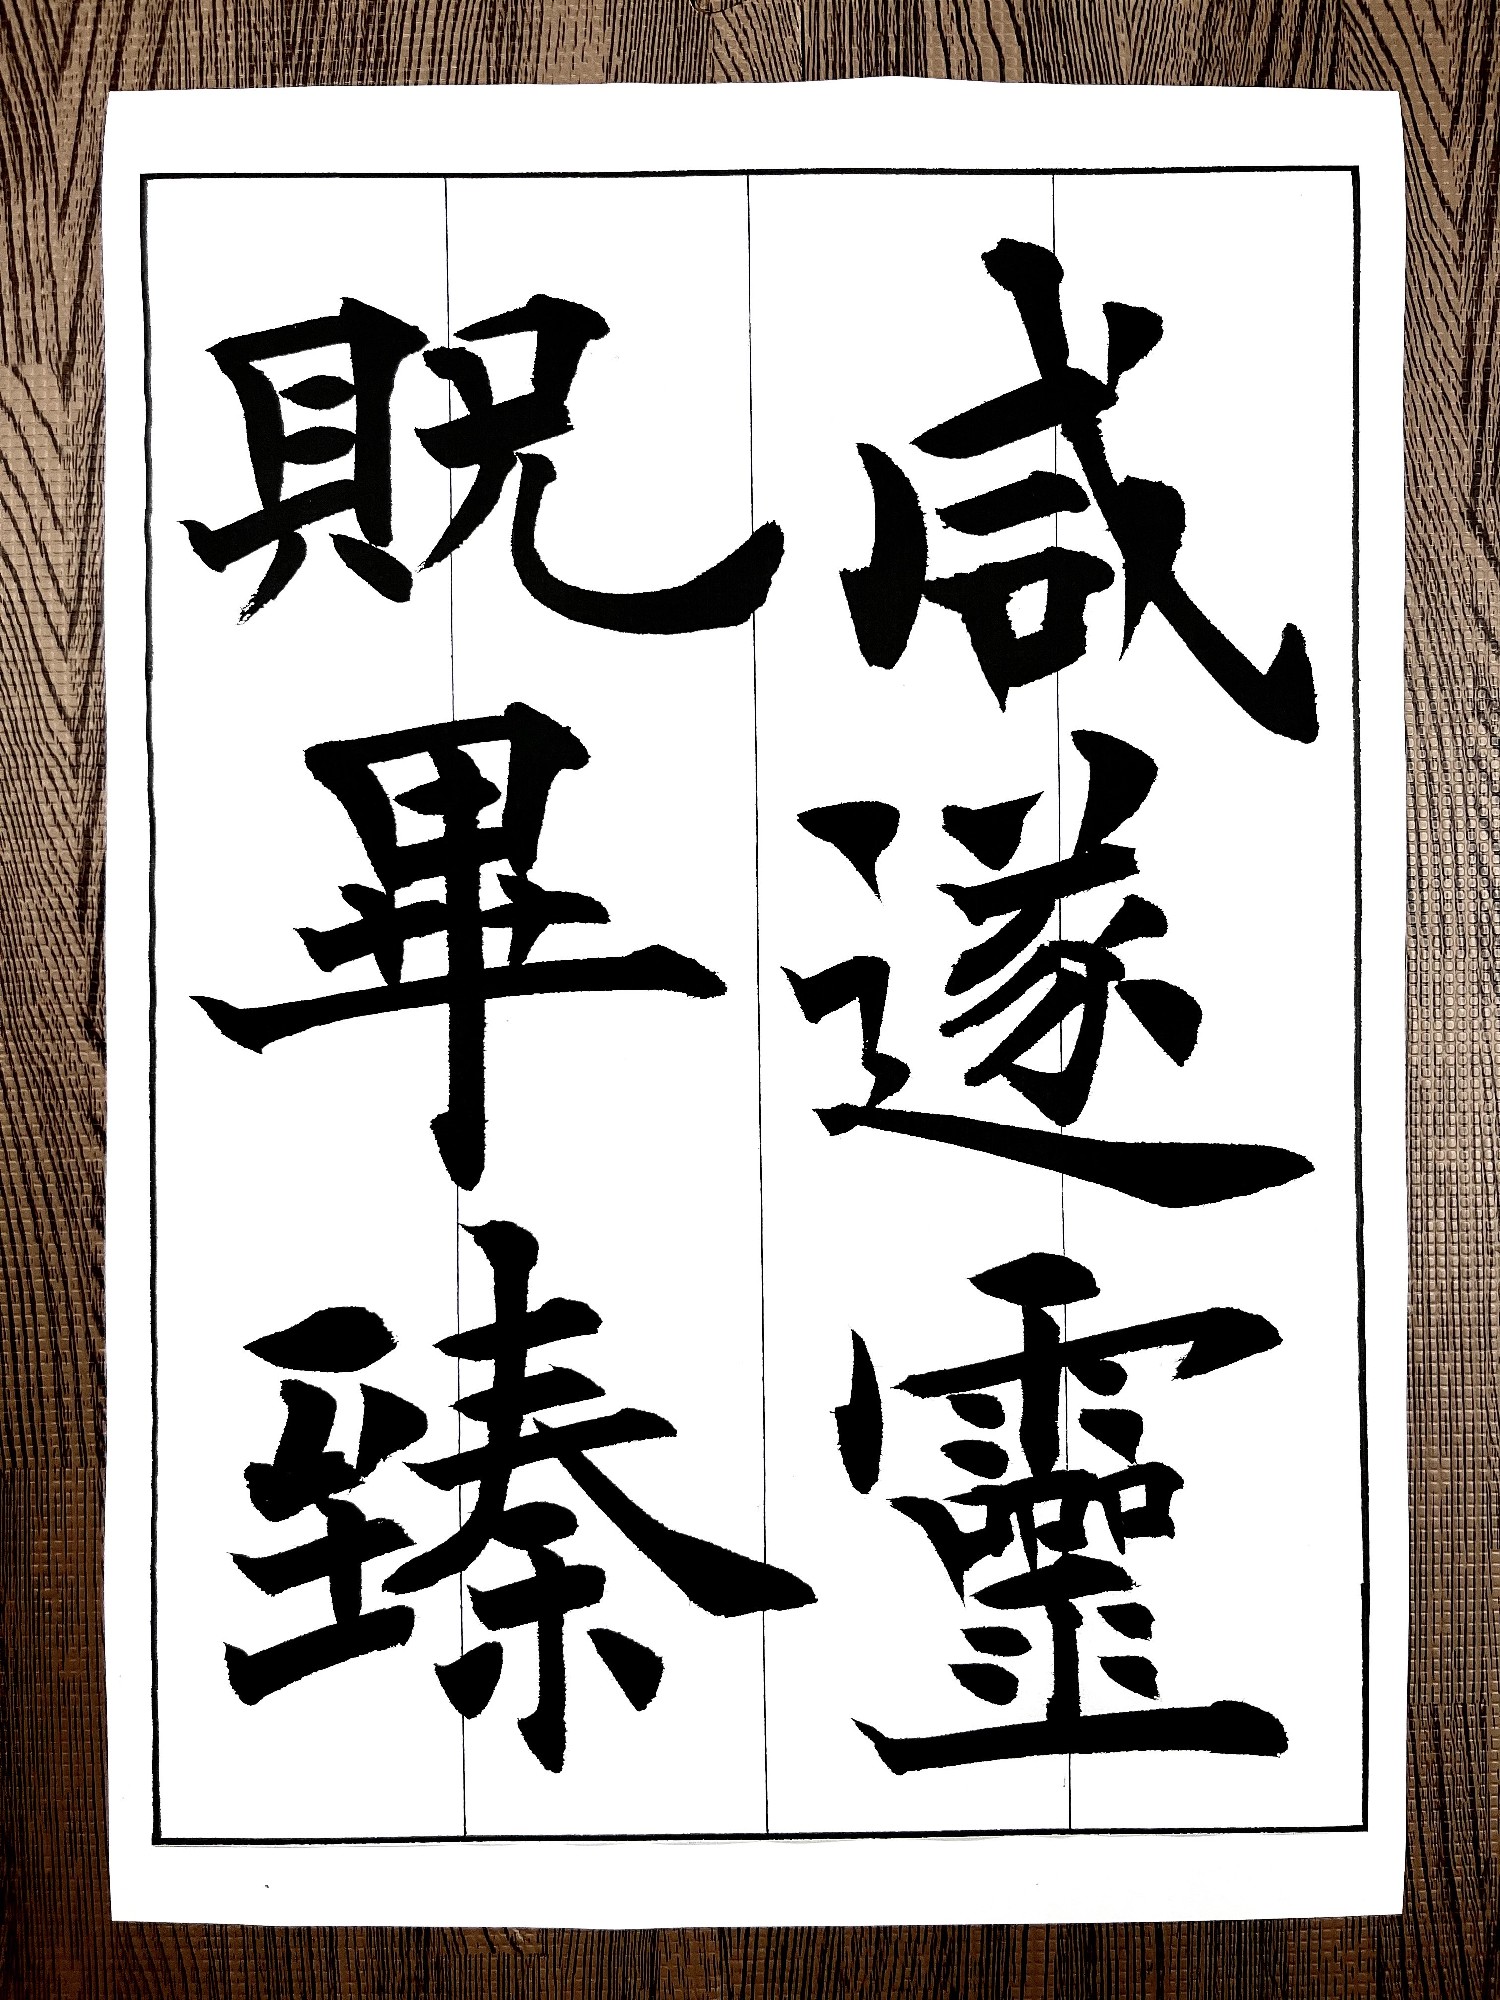 咸遂靈
貺畢臻